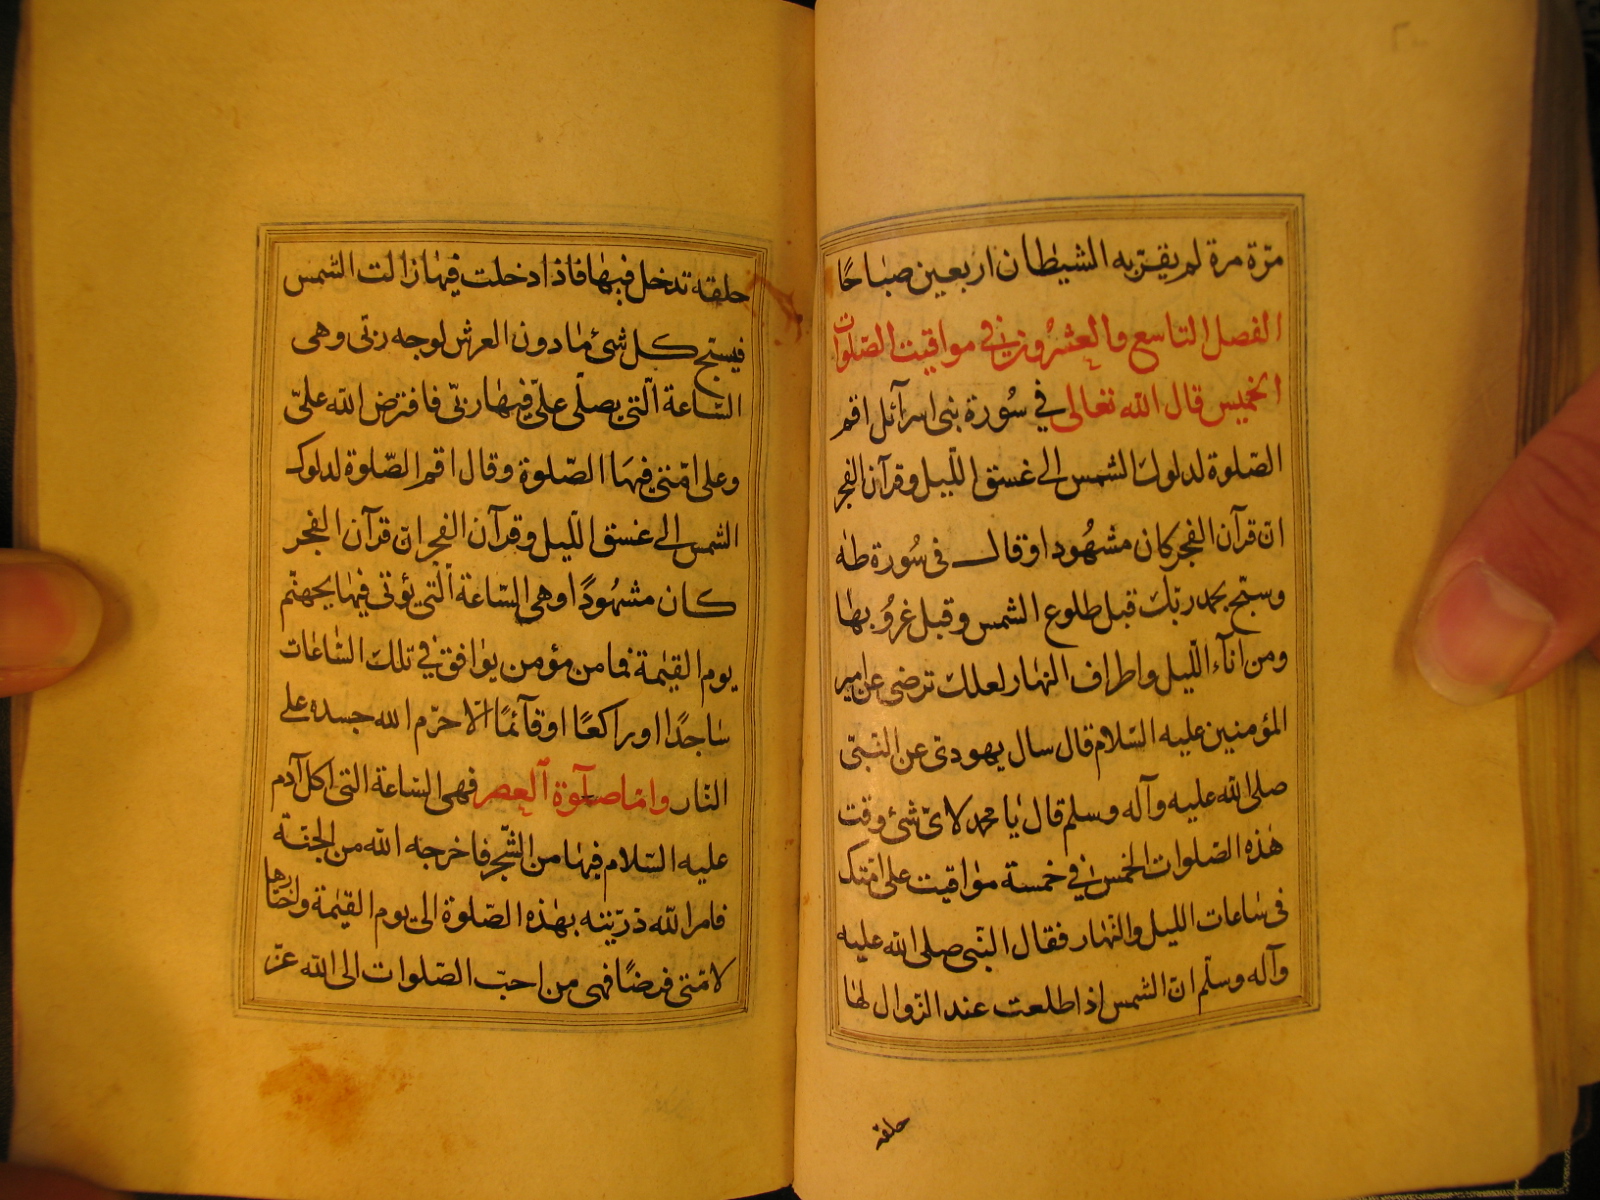 مرّة مرة لم يقربه الشيطان اربعين صباحًا
الفصل التاسع والعشرون في مواقيت الصّلوات
الخميس قال الله تعالى في سُورة بنى اسرآئل اقم
الصّلوة لدلوك الشمس الى غسق اللّيل وقرآن الفجر
انّ قرآن الفجر كان مشهُودا وقال فى سُورة طه
وسبّح بحمد ربّك قبل طلوع الشمس وقبل غروُبها
ومن آنآء اللّيل واطراف النهار لعلك ترضى عن امير
المؤمنين عليه السّلام قال سال يهودىّ عن النّبىّ
صلى الله عليه وآله وسلم قال يا محمد لاىّ شئ وقت
هٰذه الصّلوات الخمس في خمسة موٰاقيت على امّتك
فى سٰاعات الليل والنّهار فقال النّبى صلى الله عليه
وآله وسلّم انّ الشمس اذا طلعت عند الزّوال لهٰا
حلقه
حلقه تدخل فيهٰا فاذا دخلت فيهٰا زالت الشّمس
فيسبّح كل شئ مٰا دون العرش لوجه ربّى وهى
السّاعة الّتى يصلّى علىّ فيهٰا ربّى فافترض الله علىّ
وعلى امّتى فيهَا الصّلوة وقال اقم الصّلوة لدلوك
الشمس الى غسق اللّيل وقرآن الفجر انّ قرآن الفجر
كان مشهُودًا وهى السّاعة الّتى يؤتى فيهٰا بجهنّم
يوم القيٰمة فما من مؤمن يوٰافق في تلك السّٰاعٰات
سٰاجدًا او راكعًا او قآئمًا الّا حرّم الله جسده على
النّار وامّا صلوة العصر فهى السّاعة التى اكل آدم
عليه السّلام فيهٰا من الشّجر فاخرجه الله من الجنّة
فامر الله ذرّيته بهٰذه الصّلوة الى يوم القيٰمة واختارها
لامّتى فرضًا فهى من احبّ الصّلوات الى الله عزّ